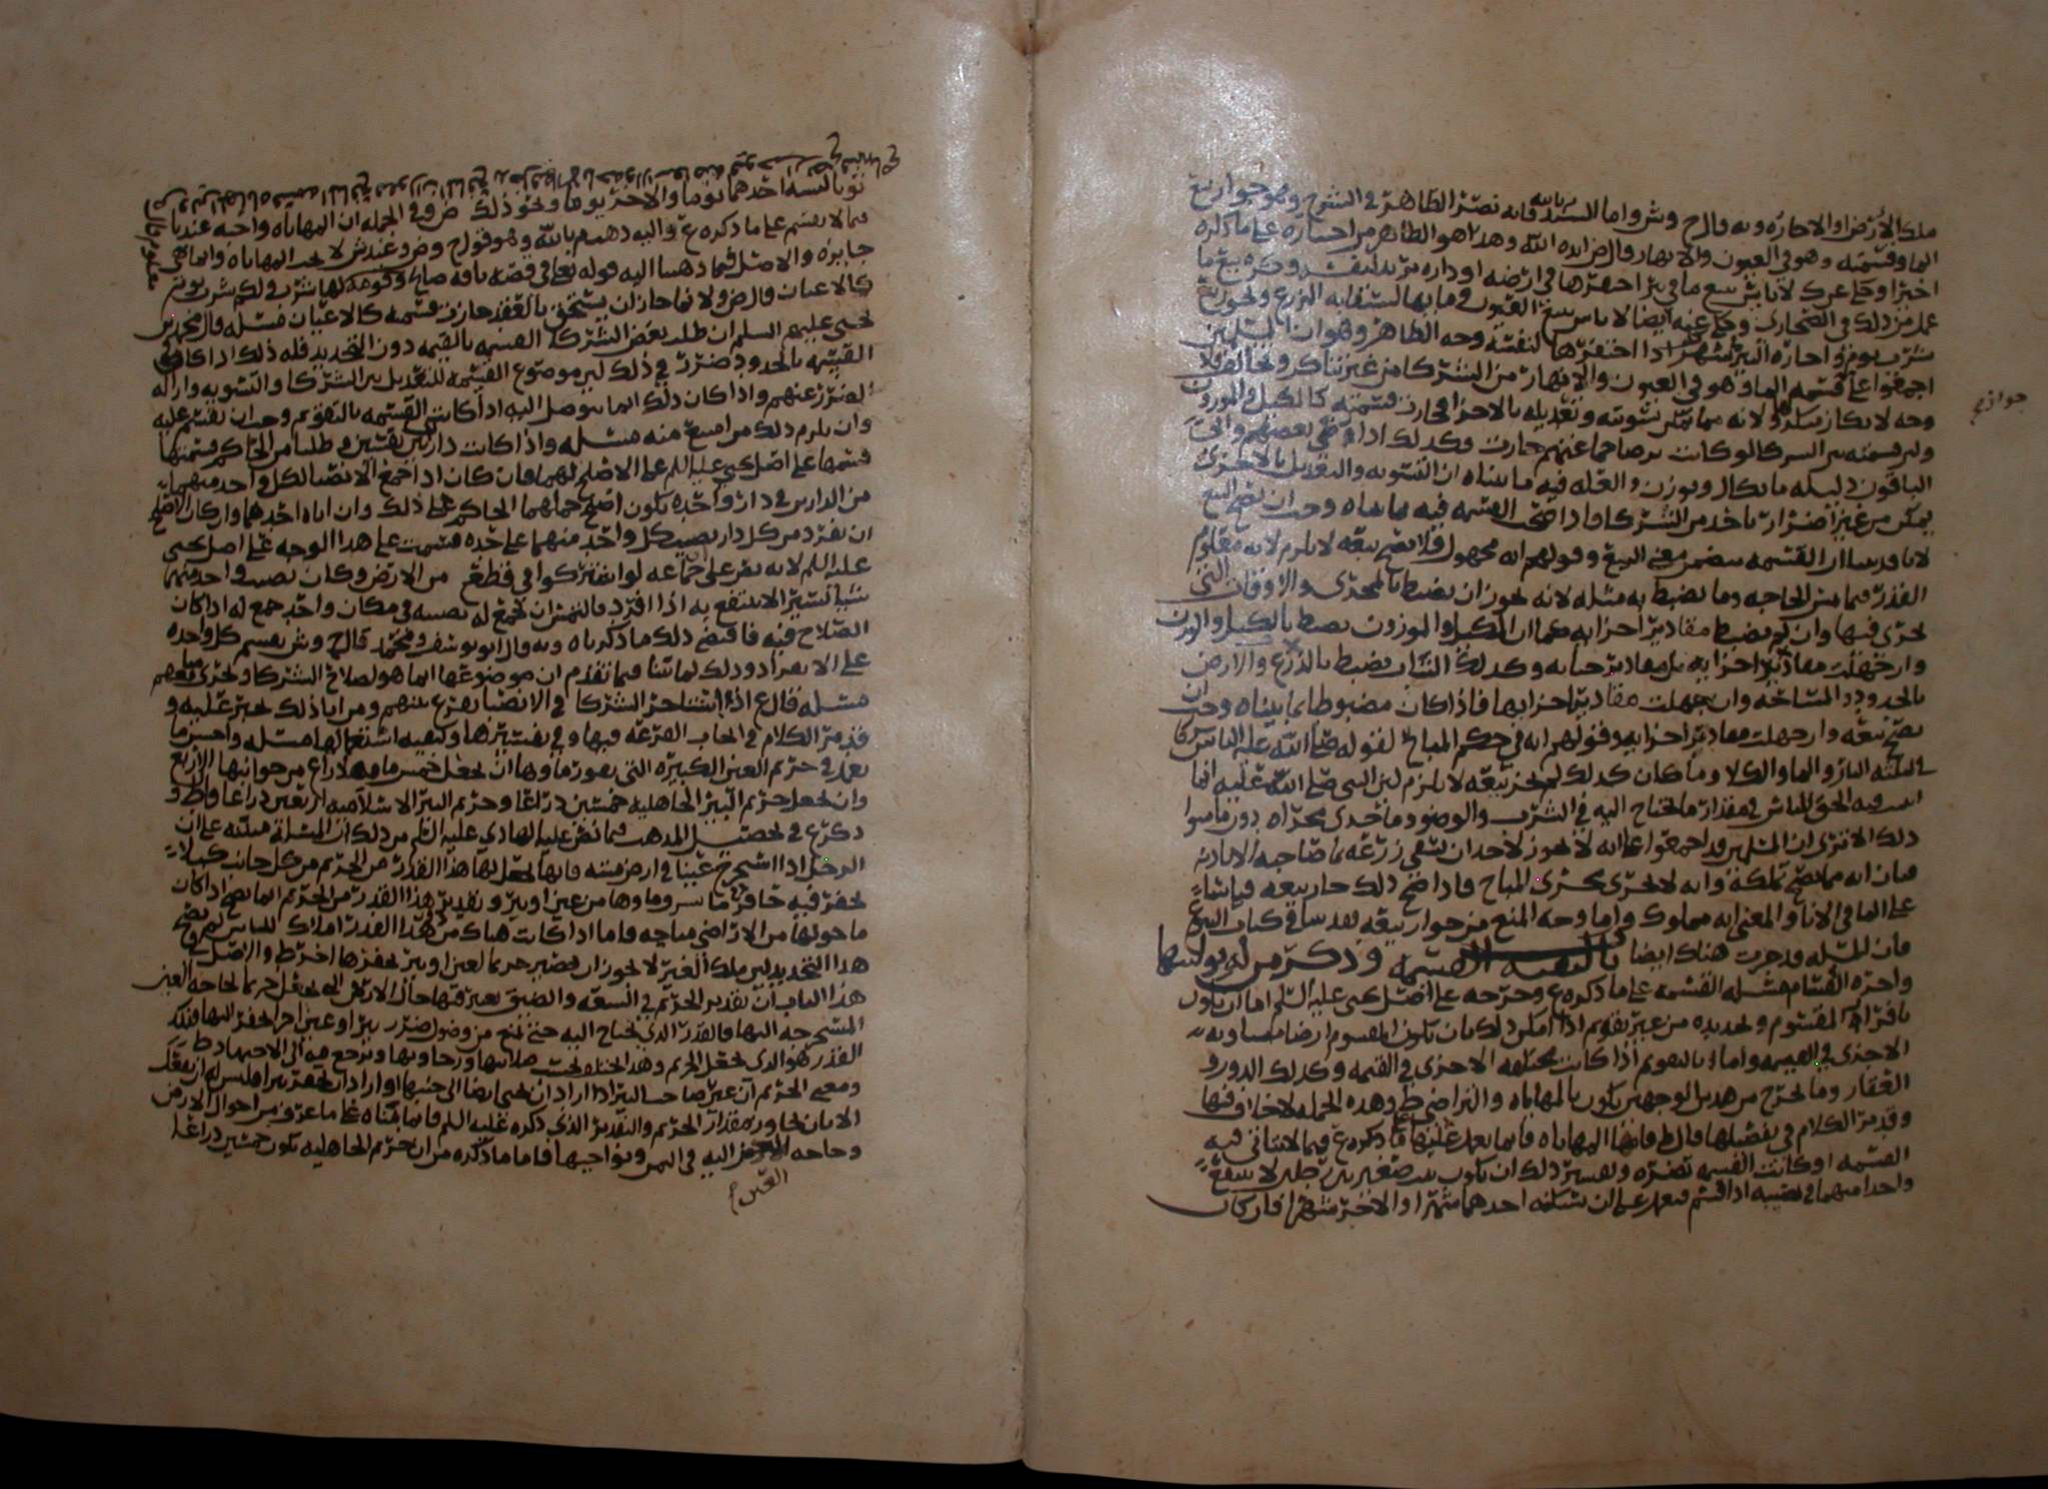 ملك الأرض او الاجاره وبه قال ح وش واما السيد م بالله فانه نصر الظاهر في الشرح وهو جواز بيع
الما وقسمته وهو في العيون والانهار قال ض ايده الله وهذا هو الظاهر من اختياره على ما ذكره
اخيرا وحكى عنه لا باس ببيع ما في بئر احتفرها في ارضه او داره يريد لنفسه وكره بيع ما
عمل من ذلك في الصحاري وحكى عنه ايضا لا باس ببيع العيون وما بها لسقايه الزرع ونحو بيع
شرب يوم واجاره البئر شهرا اذا احتفرها لنفسه وجه الظاهر وهو ان المسلمين
اجمعوا على قسمه الما وهو في العيون والانهار من الشركا من غير تناكر ونخالف ولا
وجه لانكار منكر ولانه مما يمكن تسويته وتعديله بالاجزا فجازت قسمته كالمكيل والموزون
ولو قسمته بين الشركا لو كانت برضا جماعتهم جازت وكذلك اذا رضي بعضهم وابى
الباقون دليله ما يكال ويوزن والعله فيه ما بيناه ان التسويه والتعديل بالاجزى
يمكن من غير اضرار باحد من الشركا واذا صحت القسمه فيه بما بيناه وجب ان يصح البيع
لانا قد بينا ان القسمه تتضمن معنى البيع وقولهم انه مجهول فلا يصح بيعه لا يلزم لانه معلوم
القدر فيما يمس الحاجه وما يضبط به مثله لانه يجوز ان يضبط بالمجرى والاوقات التي
يجري فيها وان لم يضبط مقادير اجزائه كما ان المكيل والموزون يضبط بالكيل والوزن
وان جهلت مقادير اجزايه بل مقادير حباته وكذلك الثياب يضبط بالذرع والارض
بالحدود والمساحه وان جهلت مقادير اجزايها فاذا كان مضبوطا بما بيناه وجب ان
يصح بيعه وان جهلت مقادير اجزايه وقولهم انه في حكم المباح لقوله صلى الله عليه الناس شركا
في ثلثه النار والما والكلا وما كان كذلك لم يجز بيعه لا يلزم لان النبي صلى الله عليه انما
اثبت فيه الحق للناس في مقدار ما يحتاج اليه في الشرب والوضوء وما جرى مجراه دون ما سوا
ذلك الا ترى ان المسلمين قد اجمعوا على انه لا يجوز لاحد ان يسقي زرعه بما صاحبه الا باذنه
فبان انه مما يصح تملكه وانه لا يجري مجرى المباح فاذا صح ذلك جاز بيعه قياسا
على الما في الانا والمعنى انه مملوك واما وجه المنع من جواز بيعه فقد بينا في كتاب البيع
فان المسله قد جرت هناك ايضا باب كيفيه القسمه وذكر من له توليتها
واجره القسام مسله القسمه على ما ذكره ع وخرجه على اصل يحيى عليه السلم اما ان يكون
بافراز المقسوم وتحديده من غير تقويم اذا امكن ذلك بان يكون المقسوم ارضا متساويه
الاجزى في القيمه واما بالتقويم اذا كانت مختلفه الاجزى في القيمه وكذلك الدور و
العقار وما يخرج من هذين الوجهين يكون بالمهاياه والتراضي ط وهذه الجمله لا خلاف فيها
وقد مر الكلام في تفصيلها قال ط فاما المهاياه فانما يعمل عليها على ما ذكره ع فيما لا يتاتى فيه
القسمه او كانت القسمه تضره وتفسير ذلك ان يكون بيت صغير بين رجلين لا ينتفع
واحد منهما في نصيبه اذا قسم فيعمل على ان يسكنه احدهما شهرا والاخر شهرا فان كان
جواز ح
ثوبا لبسه احدهما يوما والاخر يوما ونحو ذلك ض وفي الجمله ان المهاياه واجبه عندنا
فيما لا يقسم على ما ذكره ع واليه ذهب م بالله وهو قول ح وص وعند ش لا تجب المهاياه وانما هي
جايزه والاصل فيما ذهبنا اليه قوله تعالى في قصه ناقه صالح وقومه لها شرب ولكم شرب يوم
كالاعيان قال ض ولانما جاز ان يستحق بالعقد جازت قسمته كالاعيان مسله قال محمد بن
يحيى عليهم السلم ان طلب بعض الشركا القسمه بالقيمه دون التحديد فله ذلك اذا كان في
القسمه بالحدود ضرر في ذلك لان موضوع القسمه للتعديل بين الشركا والتسويه وازاله
الضرر عنهم واذا كان ذلك انما يتوصل اليه اذا كانت القسمه بالتقويم وجب ان يقسم عليه
وان يلزم ذلك من امتنع منه مسله واذا كانت دار بين نفسين وطلبا من الحاكم قسمتها
قسمها على اصل يحيى عليه السلم على الاصلح لهما فان كان اذا جمع الانصبا لكل واحد منهما
من الدارين في دار واحده يكون اصلح حملهما الحاكم على ذلك وان اباه احدهما وان كان الاصلح
ان يفرد من كل دار نصيب كل واحد منهما على حده قسمت على هذا الوجه على اصل يحيى
عليه السلم لانه نص على جماعه لو اشتركوا في قطع من الارض وكان نصيب واحد منهم
شيا يسيرا لا ينتفع به اذا افرد فالتمس ان يجمع له نصيبه في مكان واحد جمع له اذا كان
الصلاح فيه فاقتضى ذلك ما ذكرناه وبه قال ابو يوسف ومحمد قال ح وش يقسم كل واحده
على الانفراد وذلك لما بينا فيما تقدم ان موضوعها انما هو لصلاح الشركا وتحرى نفعهم
مسله قال ع اذا تشاجر الشركا في الانصبا يقرع بينهم ومن ابا ذلك يجبر عليه و
قد مر الكلام في ايجاب القرعه فيها وفي تفسيرها وكيفيه استعمالها مسله واحسن ما
يعمل في حريم العين الكبيره التي يفور ماوها ان يجعل خمس مايه ذراع من جوانبها الاربع
وان يجعل حريم البير الجاهليه خمسين ذراعا وحريم البير الاسلاميه اربعين ذراعا قال ط و
ذكر ع في تحصيل المذهب فيما نص عليه الهادي عليه السلم من ذلك ان المسله مبنيه على ان
الرجل اذا استخرج عينا في ارض ميته فانها يجعل لها هذا القدر من الحريم من كل جانب كيلا
يحفر فيه حافر ما يسرق ماوها من عين او بير وتقدير هذا القدر من الحريم انما يصح اذا كان
ما حولها من الاراضي مباحه فاما اذا كانت هناك من هذا القدر املاك للناس لم يصح
هذا التحديد لان ملك الغير لا يجوز ان يصير حريما لعين او بير يحفرها اخر ط والاصل في
هذا الباب ان تقدير الحريم في السعه والضيق يعتبر فيها حال الارض التي تجعل حريما لحاجه العين
المستخرجه اليها فالقدر الذي يحتاج اليه حتى يمنع من وصول ضرر بير او عين اخرى تحفر اليها فذلك
القدر هو الذي يجعل الحريم وهذا يختلف بحسب صلابتها ورخاوتها ويرجع فيه الى الاجتهاد ط
ومعنى الحريم ان غير صاحب البير اذا اراد ان يحيى ارضا الى جنبها او اراد ان يحفر بيرا فليس له ان يفعل
الا بان يجاوز مقدار الحريم والتقدير الذي ذكره عليه السلم فانما بناه على ما عرف من احوال الارض
وحاجه العين اليه في اليمن ونواحيها فاما ما ذكره من ان حريم الجاهليه يكون خمسين ذراعا
العين ح